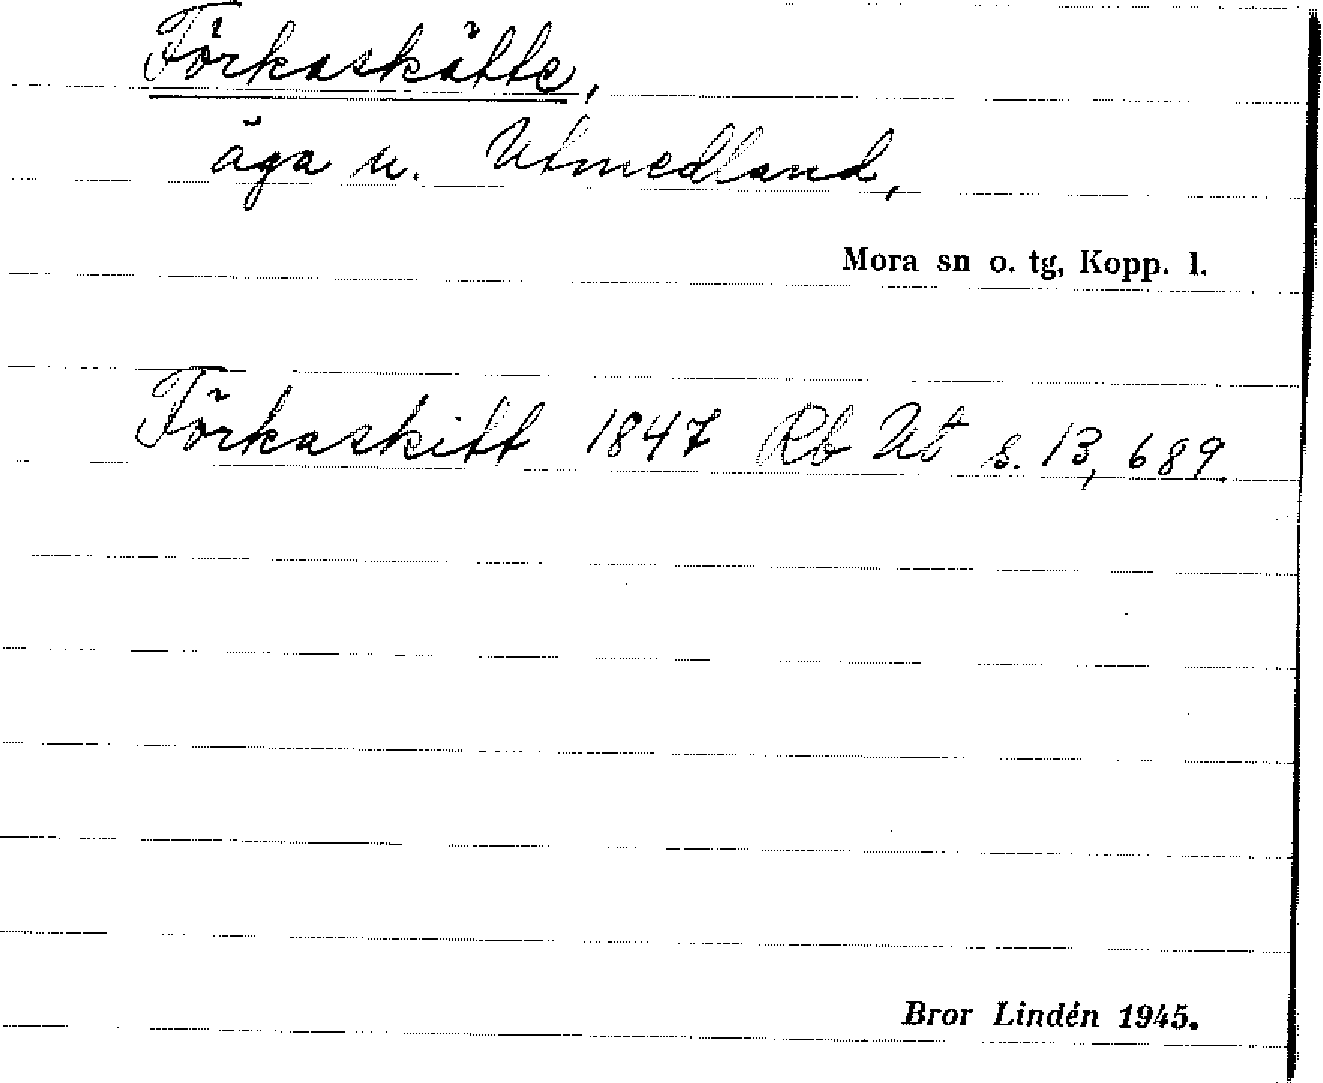 Förkaskätte,
äga u. Utmedland,
Mora sn o. tg, Kopp. l.
Förkaskitt 1847 Rb Ut s. 13, 689.
Bror Lindén 1945.